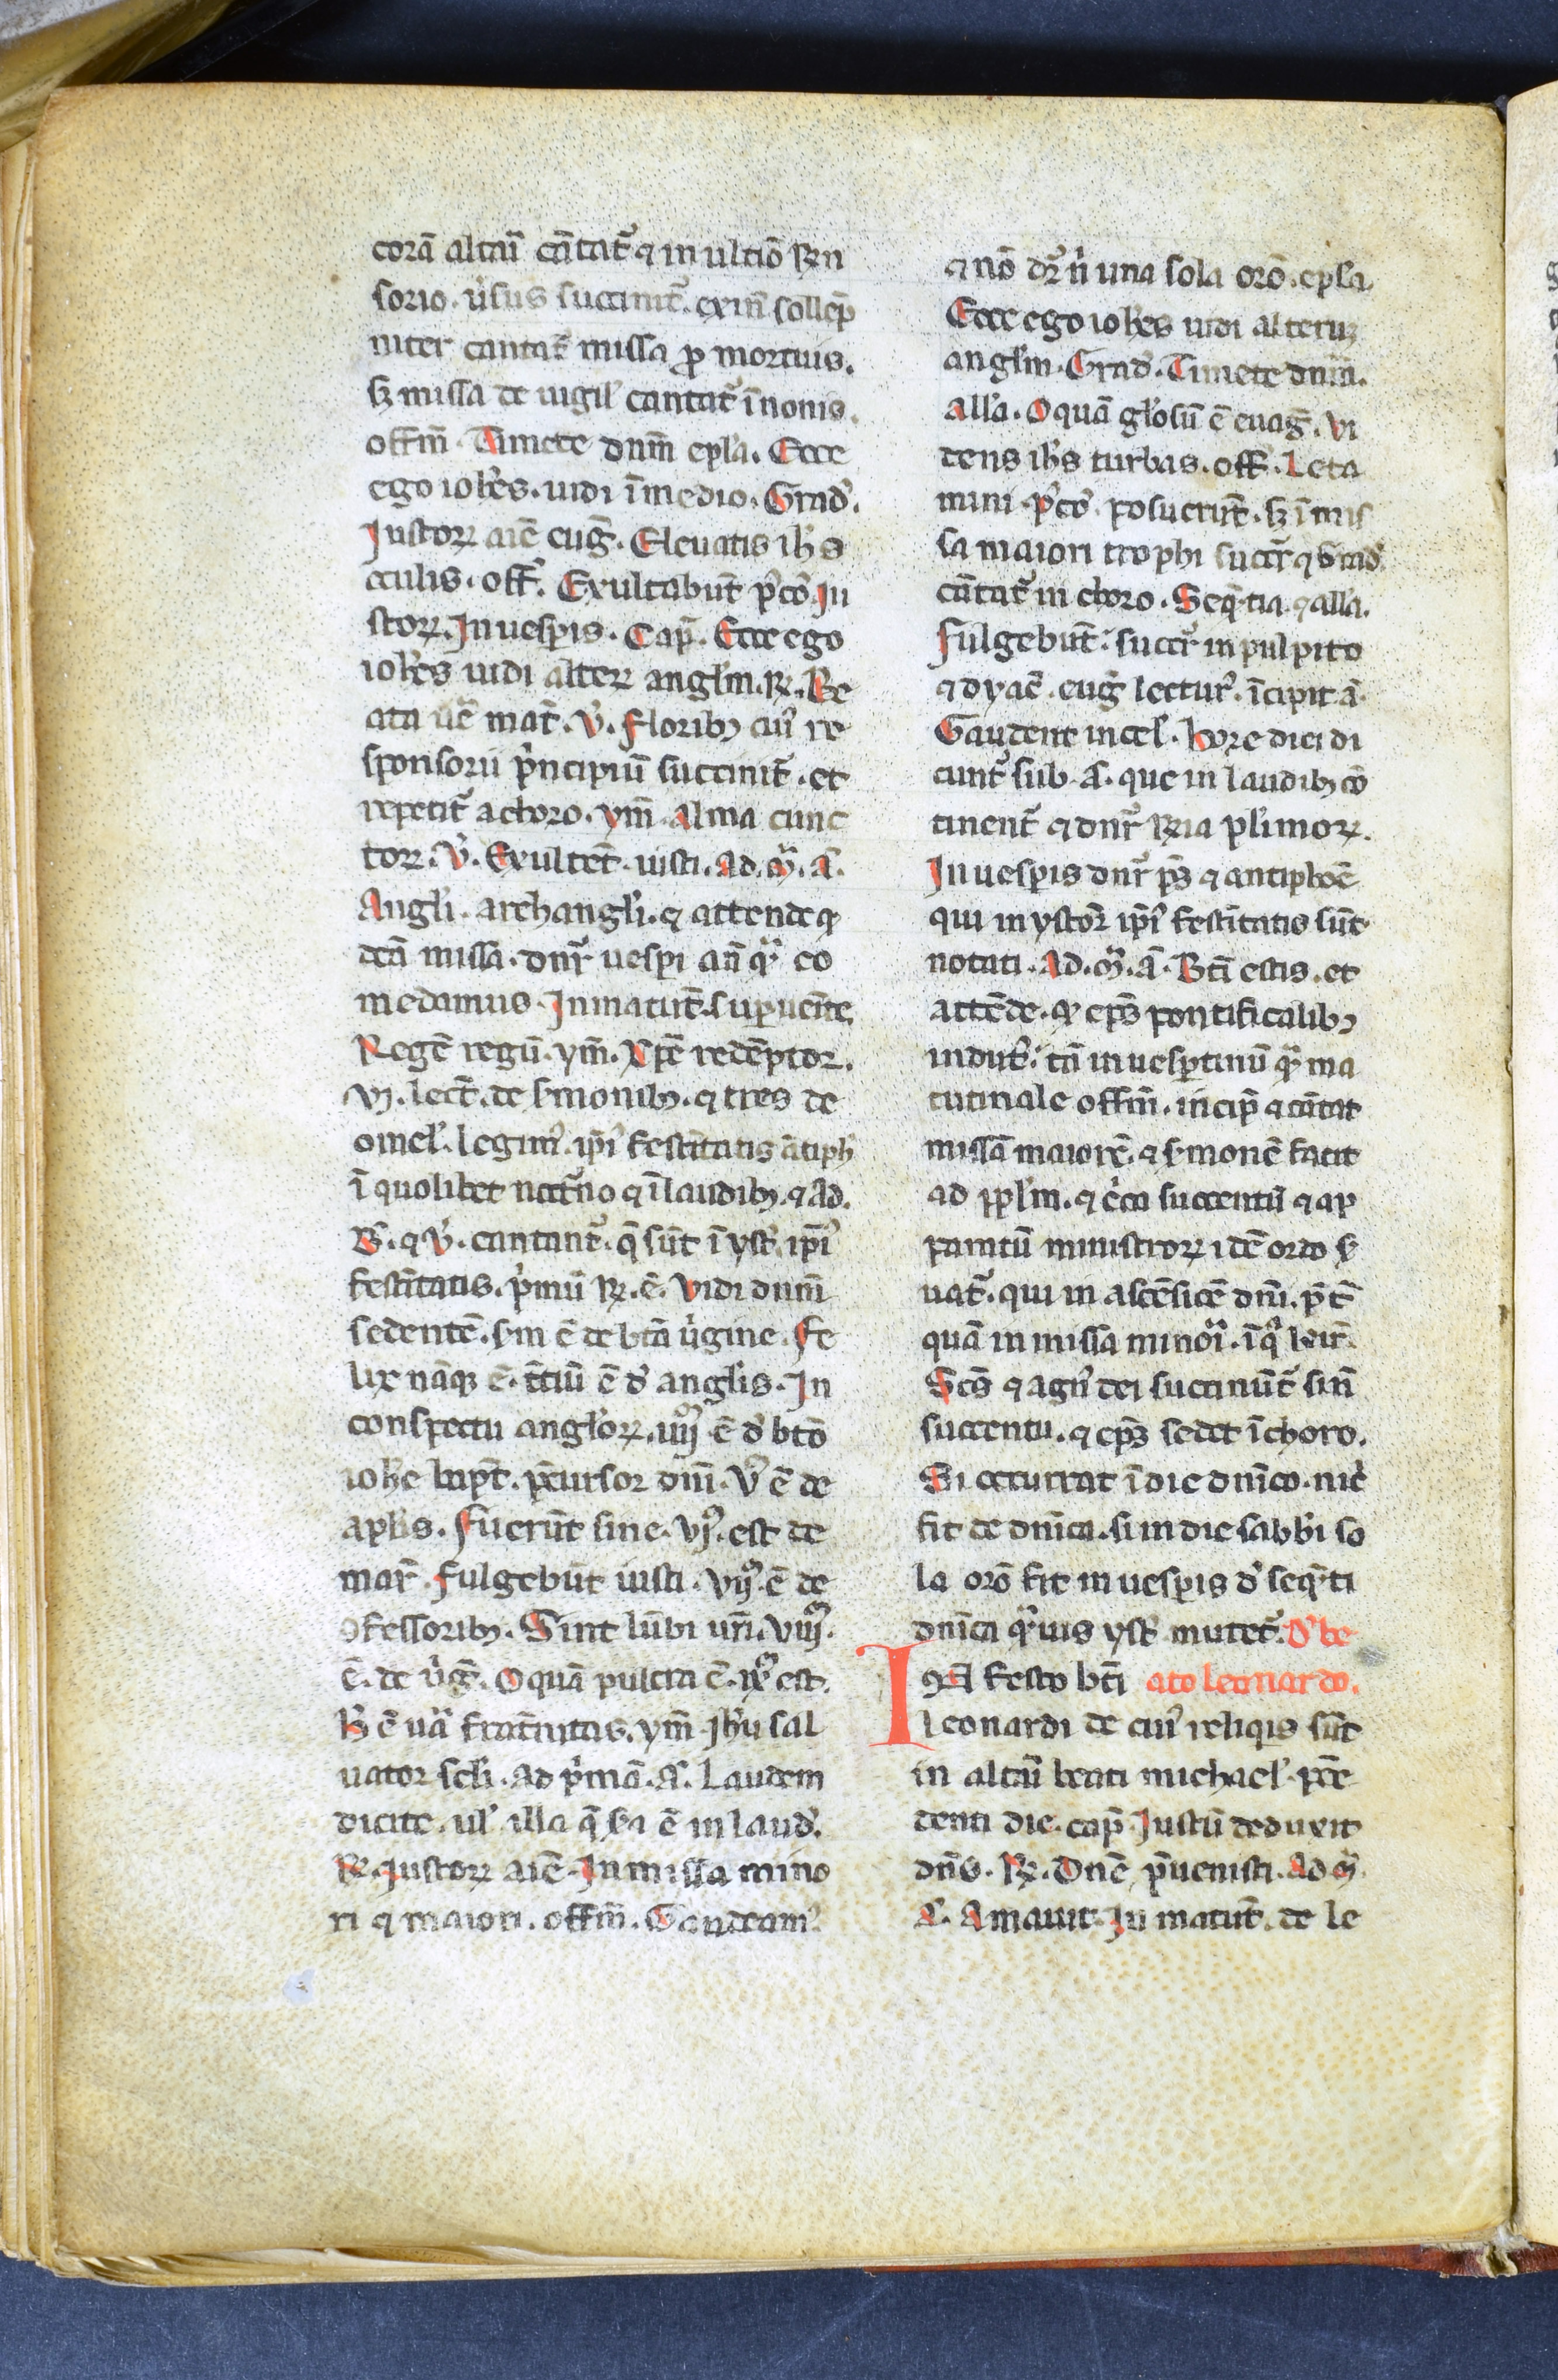 corā altaī cātat᷑ ⁊ in ultīo ꝶn
sorio. ũsus succinit᷑. exinī sollep̄
niter cantat᷑ missa ꝓ mortuis.
sꝫ missa de uigil' cantat᷑ ī nonis.
offīm. Timete dnm̄ epl'a. Ecce
ego ioh̄es. uidi ī medio. Grad'.
Justoꝝ aīe eug̃. Eleuatis ih̄s
oculis. off'. Exultabūt p̄cō Ju
stoꝝ. In uesp̱is. Cap̄. Ecce ego
ioh̄es uidi alteꝝ angl'm. ꝶ. Be
ata uē mat᷑. v̓. floribꝫ cui᷒ re
sponsorii p̓ncipiū succinit᷑. et
repetit᷑ a choro. ym̄. Alma cunc
toꝝ. v̓. Exultēt iusti. Ad. m̄. a᷑.
Angl'i. archangl'i. ⁊ attende ꝙ
dcā missa. dnr̃ uesp̱i an̄ qᷓ co
medamus. In matut᷑. suꝑuēite
Regē regū. ym̄. Xp̄e redēptor.
vj. lect̄. de s̓monibꝫ. ⁊ tres de
omel'. legim᷒. ip̄i᷒ festītatis ātiph'
ī quolibet noct̄no ⁊ ī laudibꝫ. ⁊ Ad.
B᷑. ⁊ v̓. cantant᷑. q̄ sūt ī yst᷑. ip̄i᷒
festītatis. p̓mū ꝶ. ē. Vidi dnm̄
sedentē. sm̄ ē de btā ũgine. Fe
lix nāqꝫ ē. t̄tiū ē d' angl'is. In
conspectu angl'oꝝ. iiijᵐ ē d' btō
ioh̄e bapt̄. p̄cursor dnī. V᷒ ē de
apl'is. Fuerūt sine. vjᵐ. est de
mar̃. Fulgebūt iusti. Vijᵐ. ē de
ꝯfessoribꝫ. Sint lūbi urī. Viijᵐ.
ē. de ũg̃. O quā pulcra ē. ixᵐ est.
h̄ ē uā frat̄nitas. ym̄. Jh̄u sal
uator scl'i. Ad p̓mā. a᷑. Laudem
dicite. ul' illa q̄ p̓a ē in laud'.
ꝶ. Justoꝝ aīe. In missa mino
ri ⁊ maiori. offīm. Gaudeam᷒.
⁊ nō dr̃ n̄ una sola orō. epl'a.
Ecce ego ioh̄es uidi alterūꝫ
angl'm. Grad'. Timete dnm̄.
all'a. O quā gl'osū ē euāg̃. Vi
dens ih̄s turbas. off'. Leta
mini. p̄cō. posuerūt. sꝫ ī mis
sa maiori trophi succr̃ ⁊ Grad'
cātat᷑ in choro. Seq̄tia. ⁊ all'a.
Fulgebūt. succr̃ in pulpito
⁊ dyac̄. eug̃ lectur᷒. īcipit ā.
Gaudent in cel'. hore diei di
cunt᷑ sub. a᷑. que in laudibꝫ cō
tinent᷑ ⁊ dnr̃ ꝶia pl'imoꝝ.
In uesp̱is dnr̃ ps̄ ⁊ antiphōe
qui in ystor̃ ip̄i᷒ festītatis sūt
notati. Ad. m̄. a᷑. Btī estis. et
attēde. ꝙ ep̄s pontificalibꝫ
indut᷒. tā in uesp̱tinū qᷓ ma
tutinale offīm. incip̄ ⁊ cātat
missā maiorē. ⁊ s̓monē facit
ad ppl'm. ⁊ c̓ca succentū ⁊ ap
paratū ministroꝝ idē ordo s̓
uat᷑. qui in ascēsiōe dnī. p̄t̄
quā in missa minori. ī qᷓ kir̃.
Scs̄ ⁊ agn᷒ dei succinūt᷑ sīn
succentu. ⁊ ep̄s sedet ī choro.
Si occurrat ī die dnīco. nic̓
fit de dnīca. si in die sabb'i so
la orō fit in uesp̱is d' seq̄ti
dnīca qᷓuis yst᷑ mutet᷑. D' be
IN festo btī ato leonardo.
leonardi de cui᷒ reliqis sūt
in altāi beati michael' p̄ce
denti die. cap̄ Justū deduxit
dn̄s. ꝶ. Dnē p̄uenisti. Ad m̄
a᷑. Amauit. In matut᷑. de le